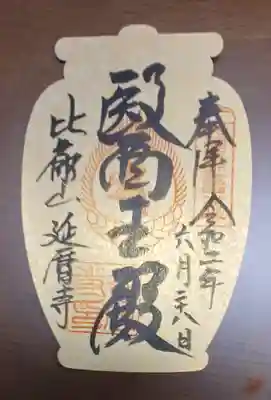 奉拝 令和二年
六月二八日
醫王殿
比叡山 延暦寺